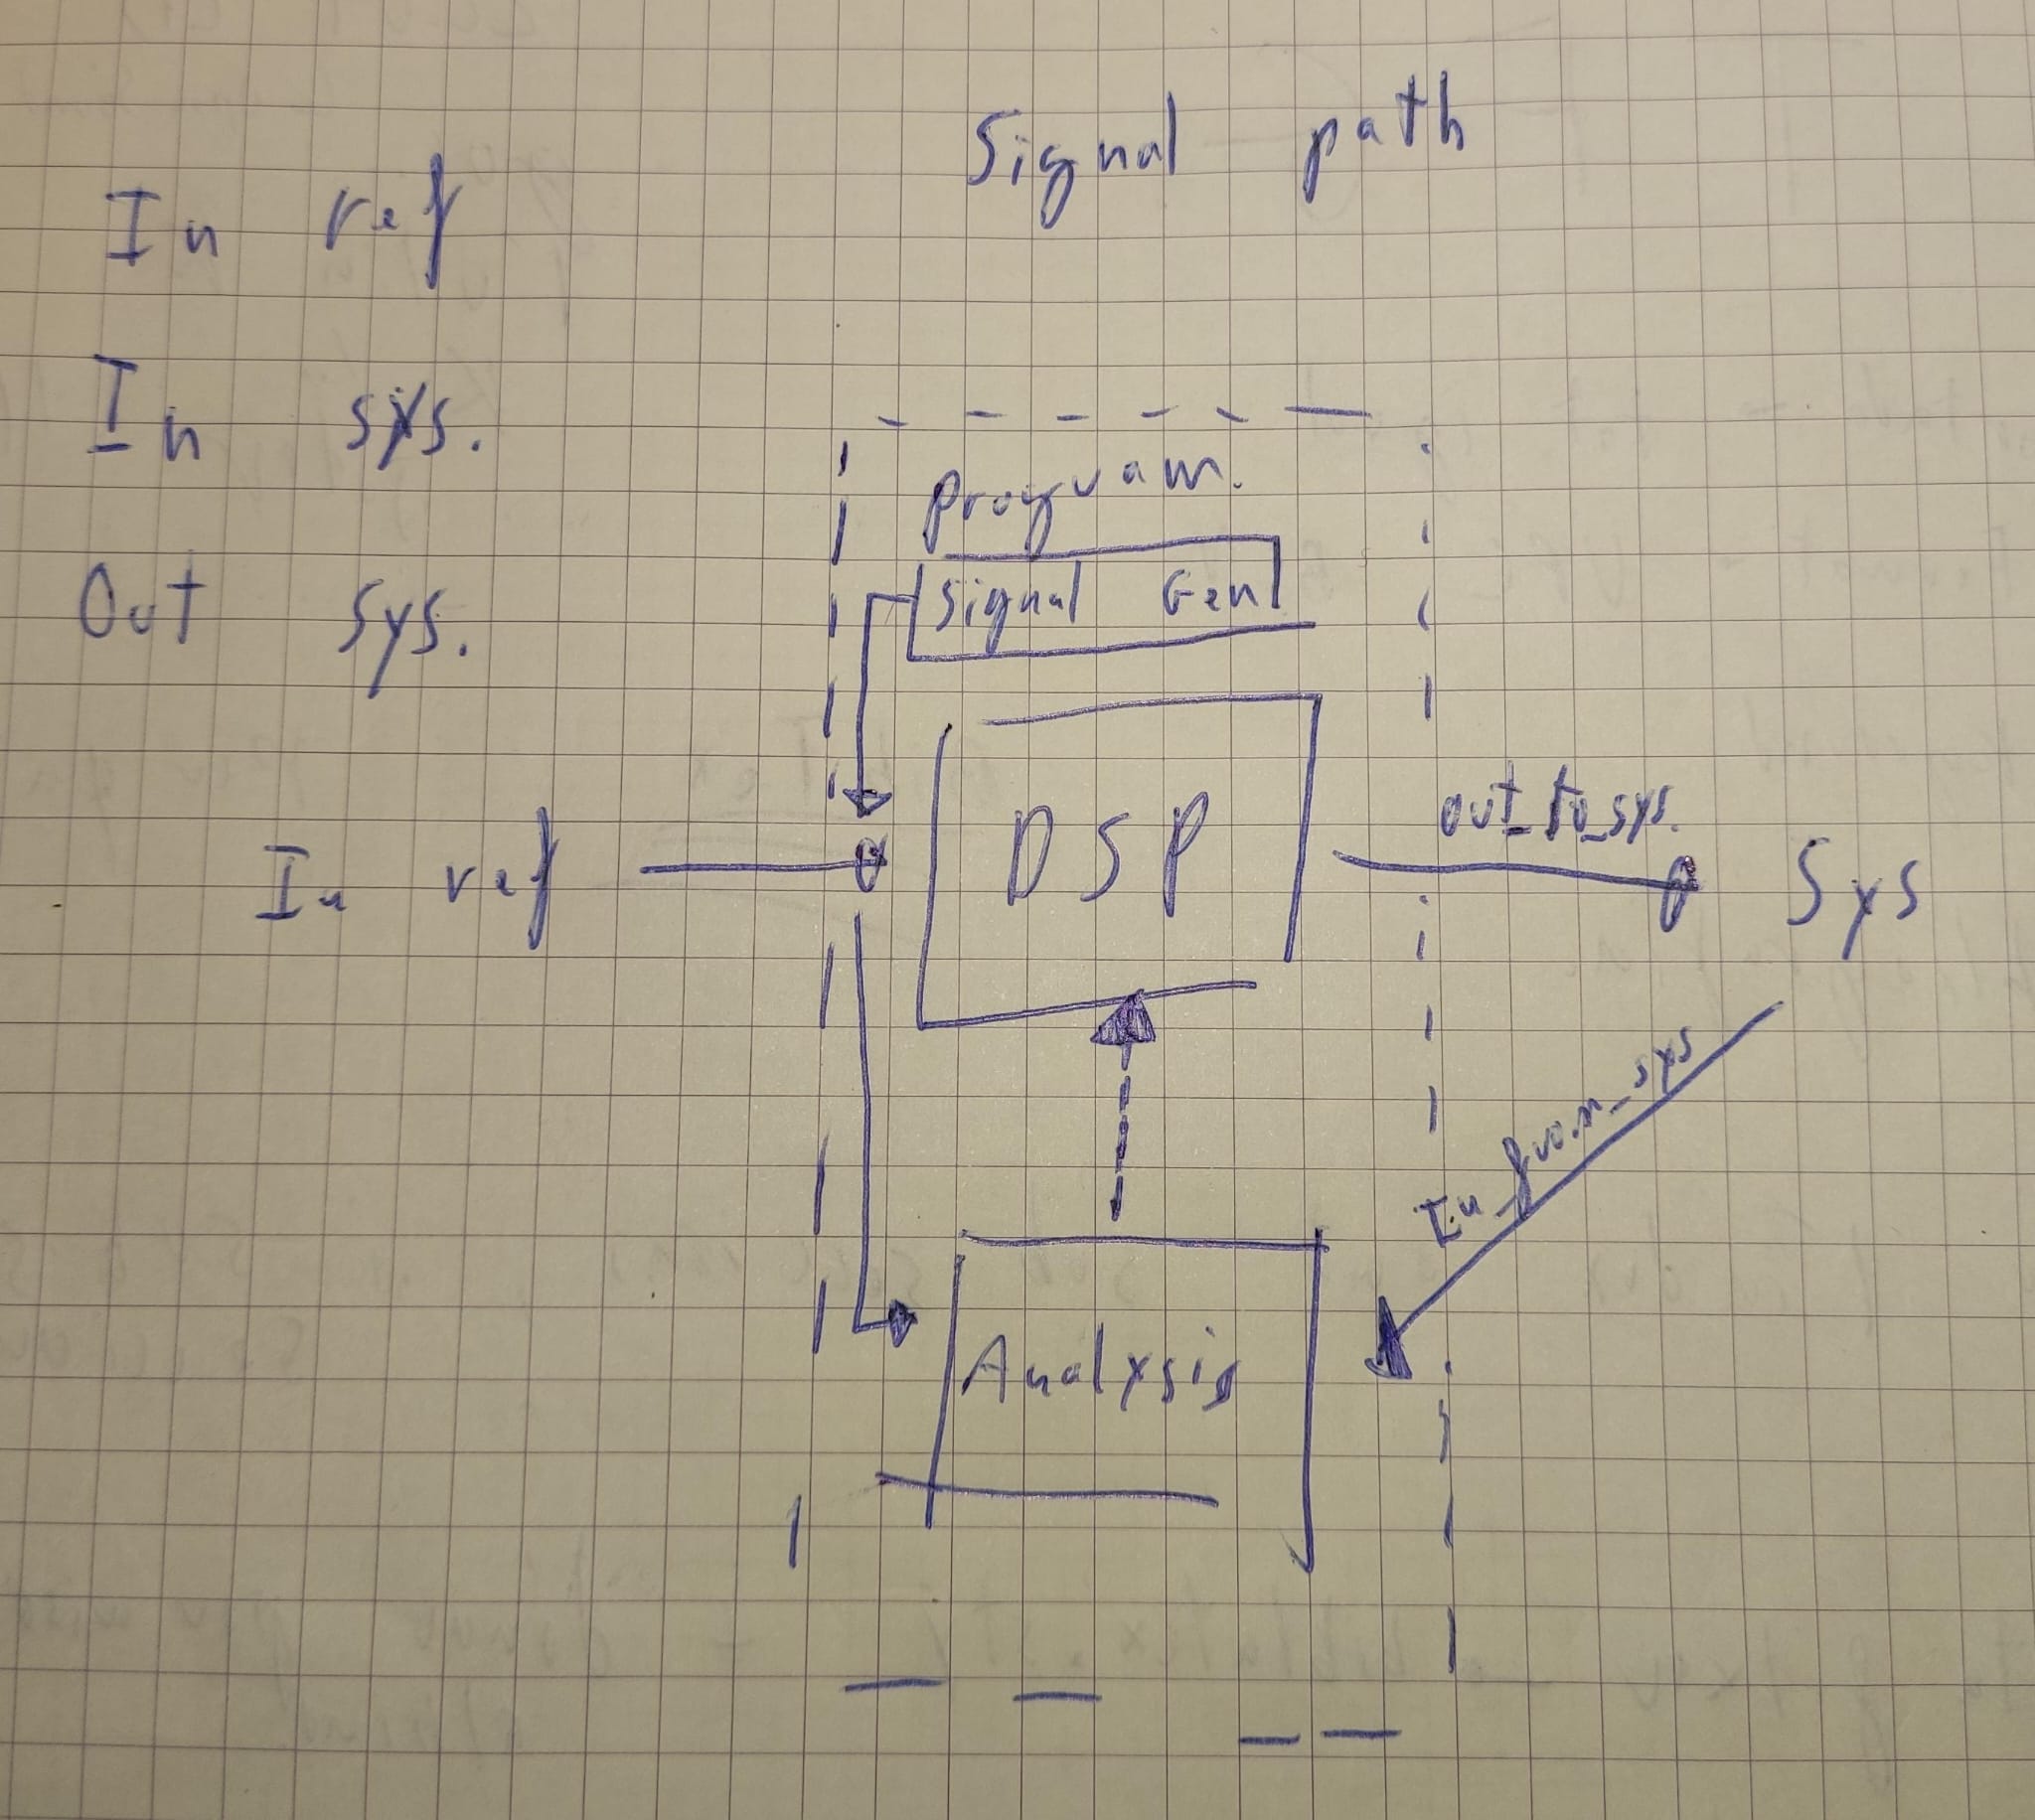 Signal path
In ref
In sys.
Out sys.
Program.
Signal Gen
DSP
out_to_sys.
In ref
Sys
In_from_sys
Analysis